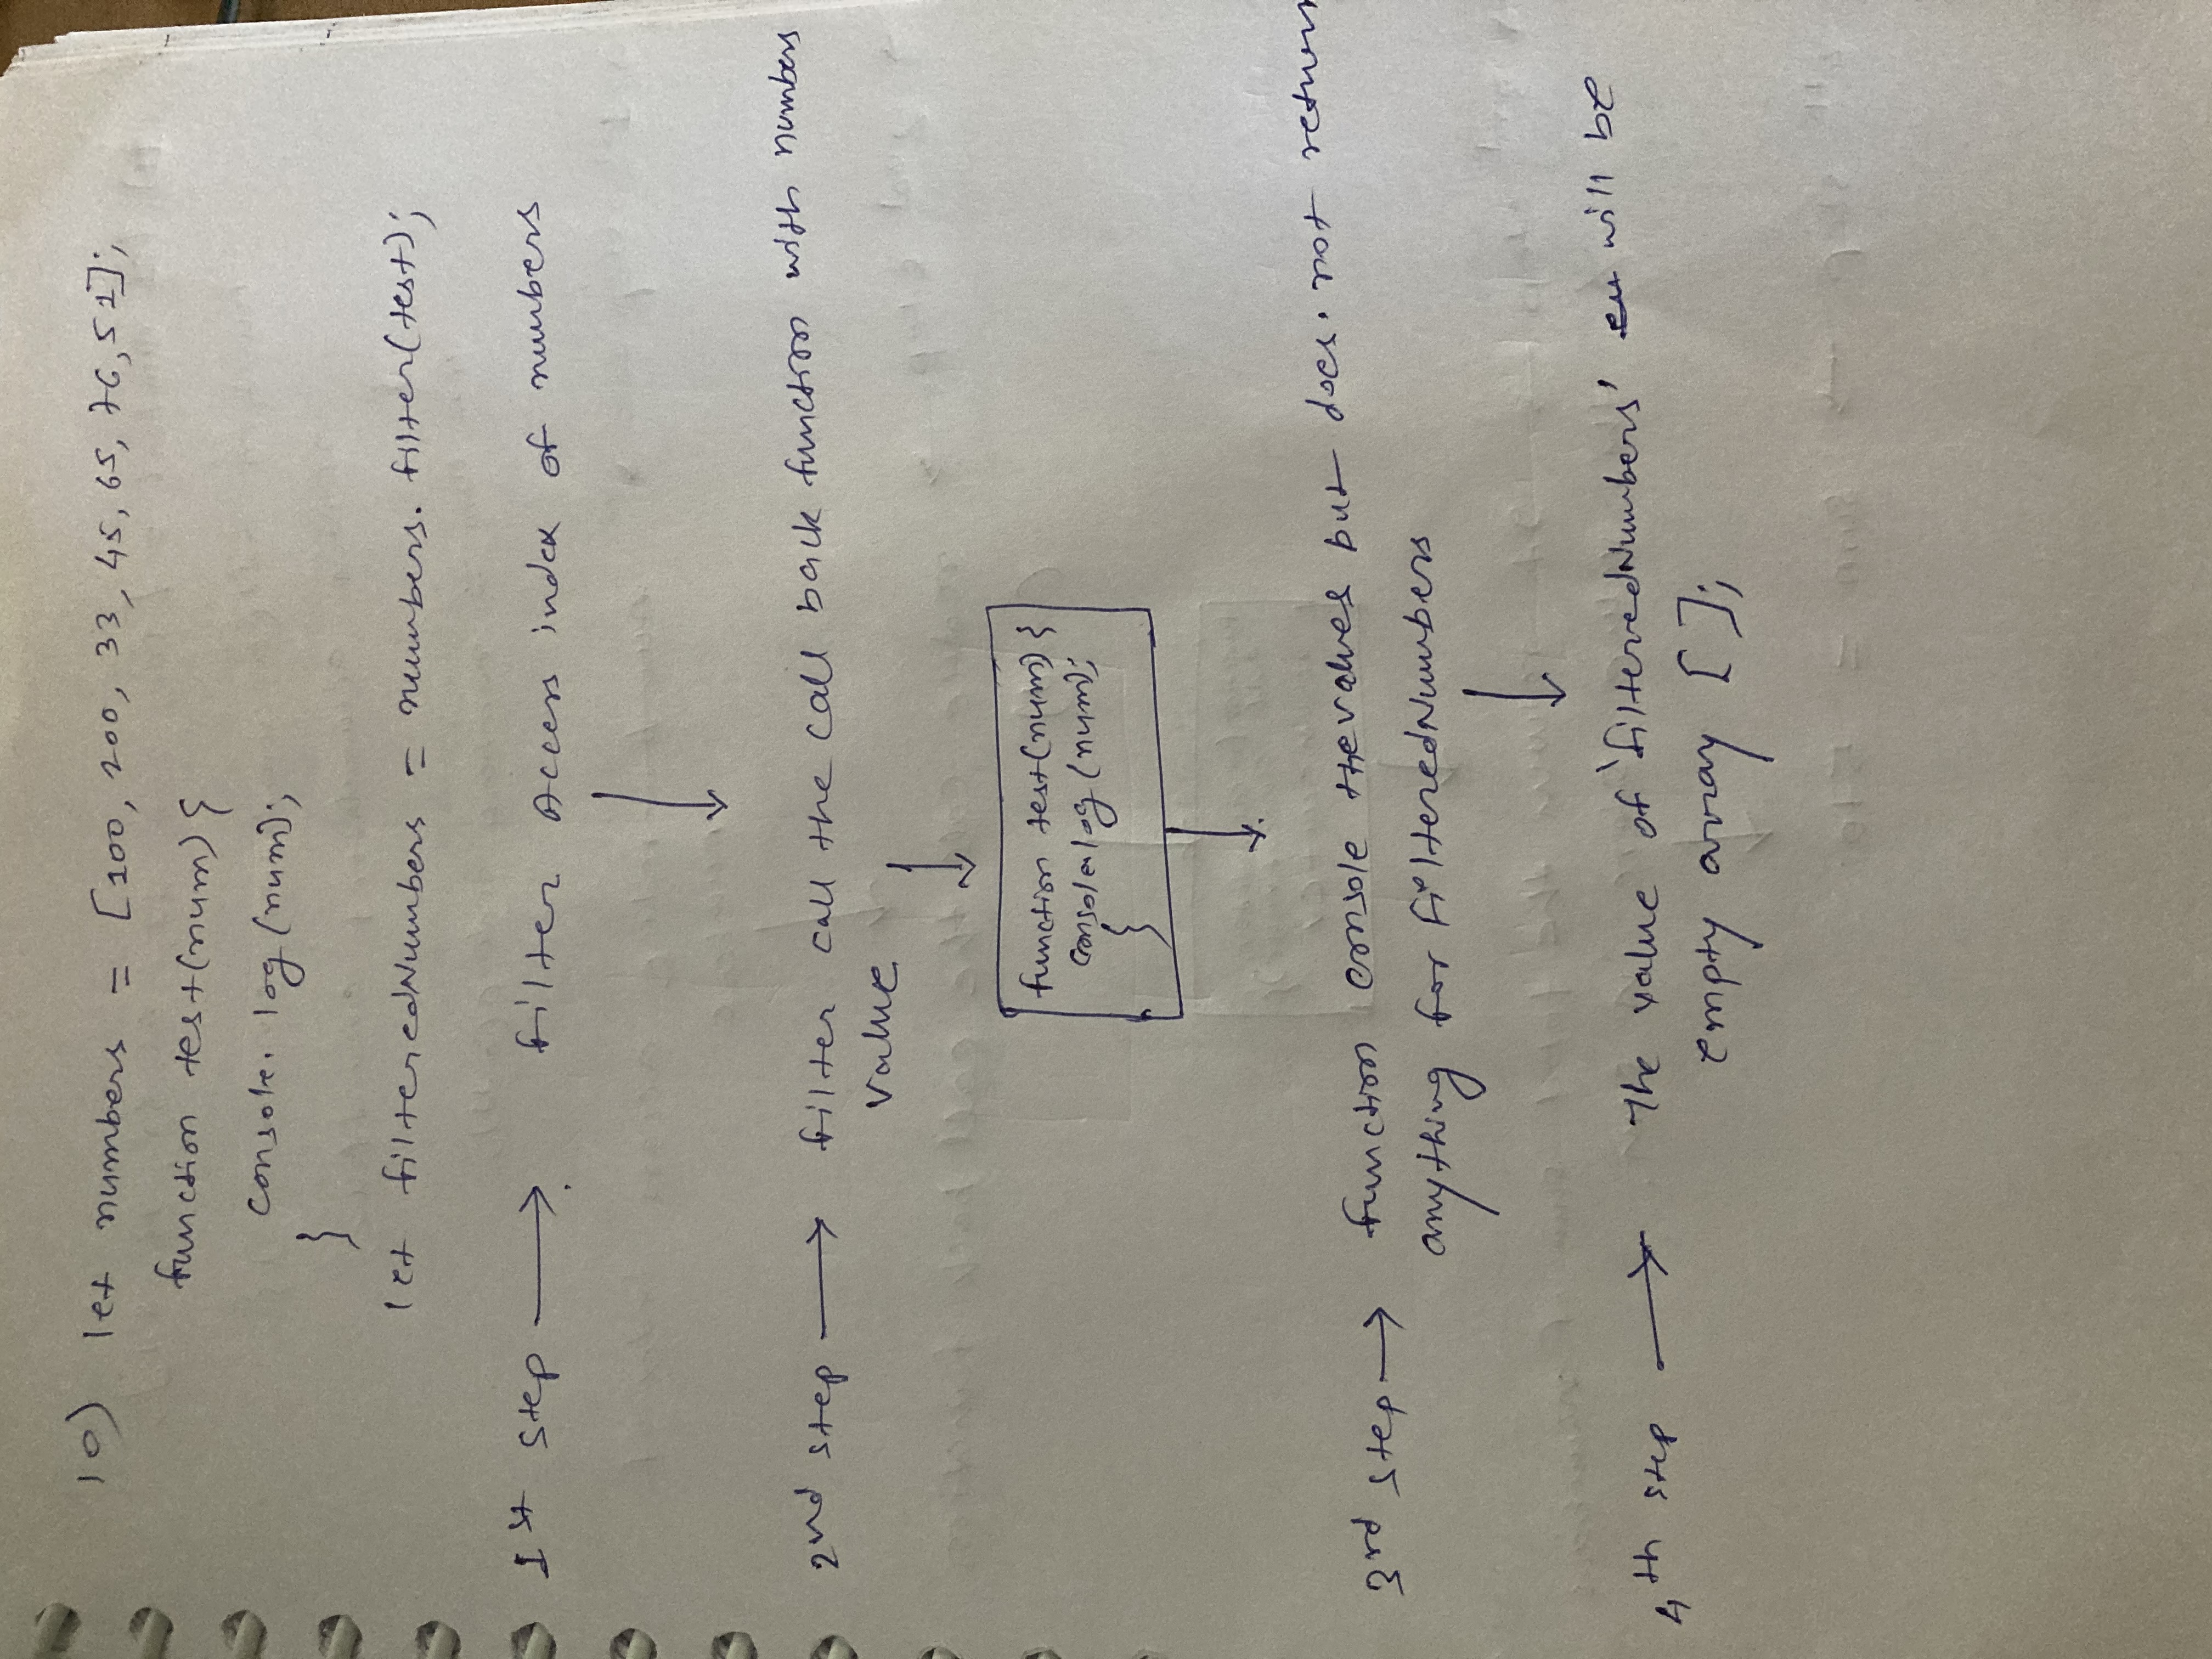 10) let numbers = [100, 200, 33, 45, 65, 76, 51];
function test(num) {
console. log (num);
}
let filteredNumbers = numbers. filter(test);
1st step → filter Access index of numbers
↓
2nd step → filter call the call back function with numbers
value
↓
function test(num) {
console.log (num);
}
↓
3rd step → function console the values but does. not return
anything for filteredNumbers
↓
4th step → The value of 'filteredNumbers' will be
empty array [ ];